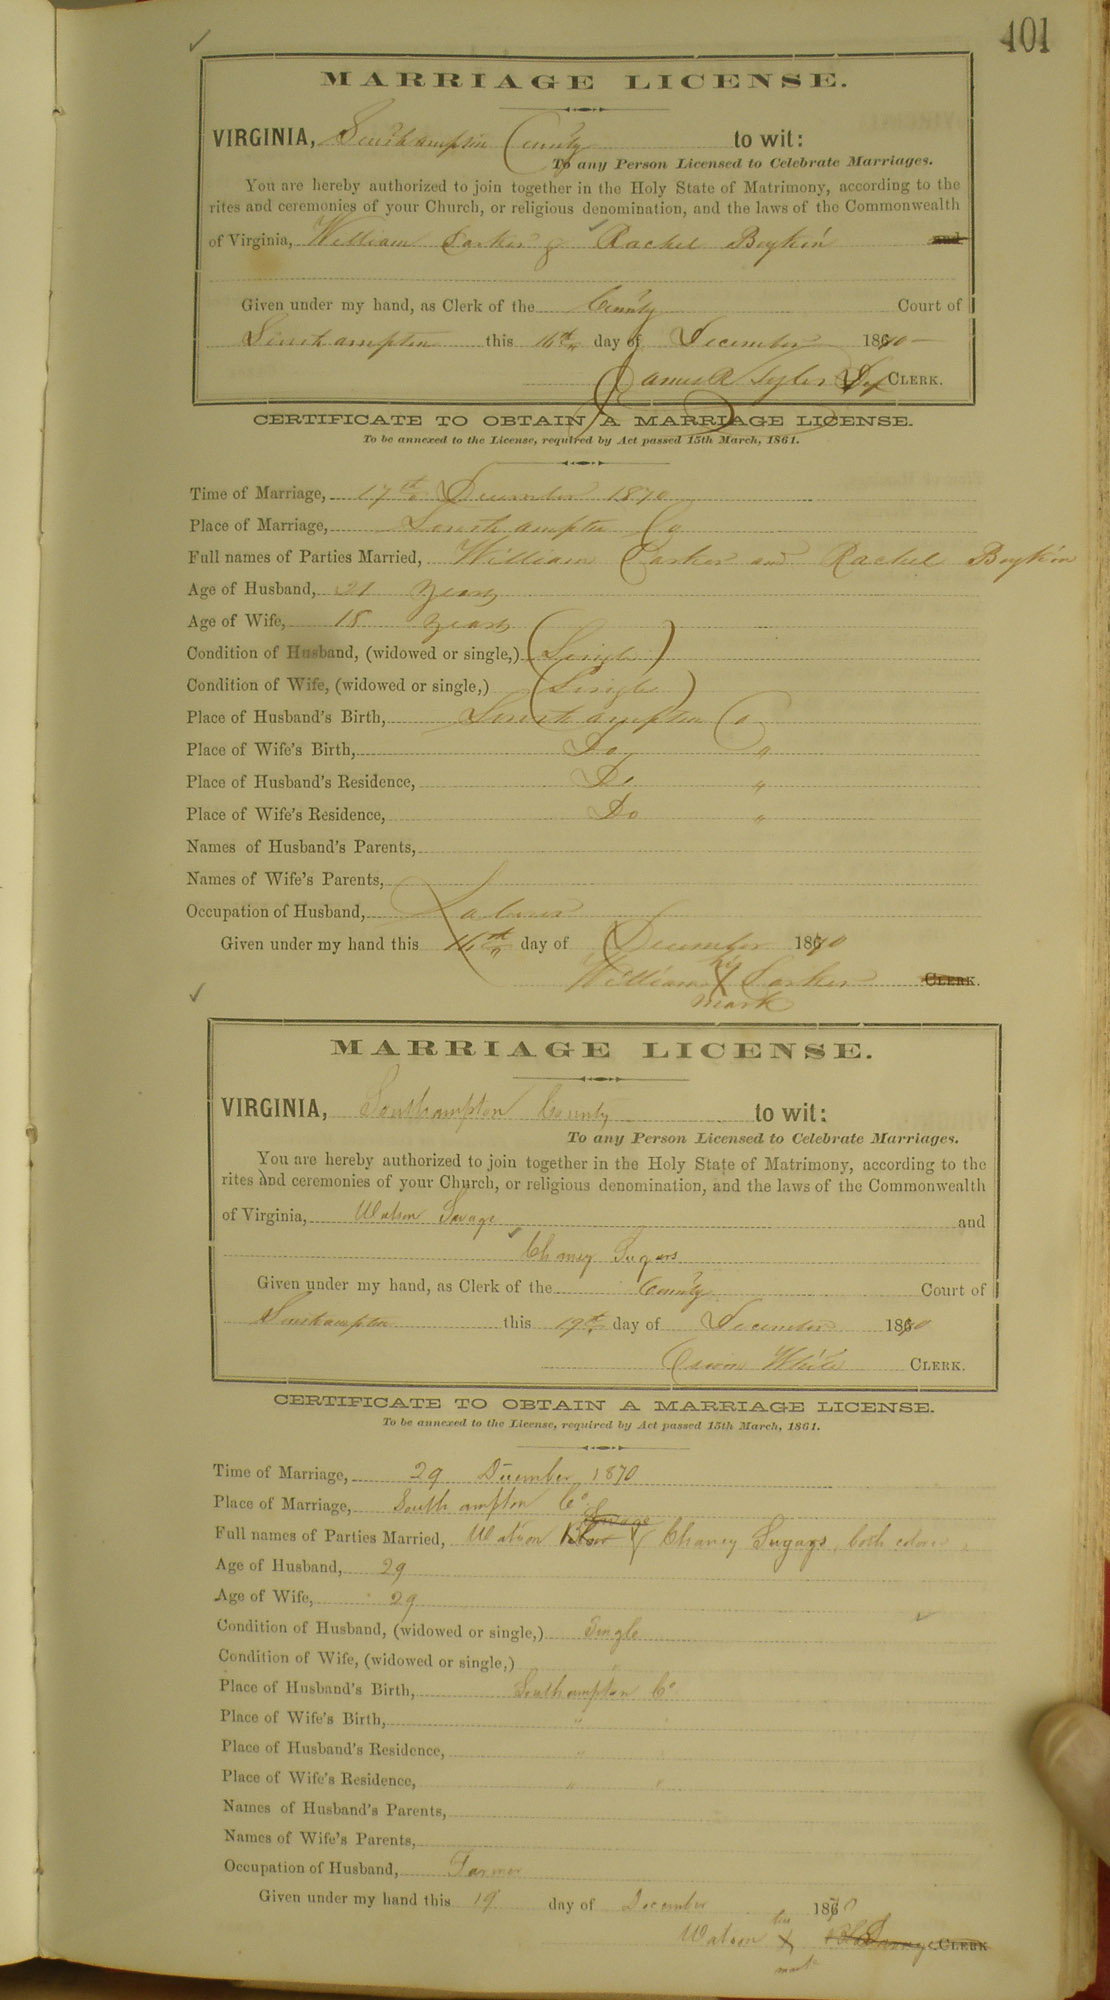 401
MARRIAGE LICENSE.
VIRGINIA, Southampton County to wit:
To any Person Licensed to Celebrate Marriages.
You are hereby authorized to join together in the Holy State of Matrimony, according to the
rites and ceremonies of your Church, or religious denomination, and the laws of the Commonwealth
of Virginia, William Parker & Rachel Boykin and
Given under my hand, as Clerk of the County Court of
Southampton this 16th day of December 1870
James R Tyler Dep CLERK.
CERTIFICATE TO OBTAIN A MARRIAGE LICENSE.
To be annexed to the License, required by Act passed 15th March, 1861.
Time of Marriage, 17th December 1870
Place of Marriage, Southampton Co
Full names of Parties Married, William Parker and Rachel Boykin
Age of Husband, 21 years
Age of Wife, 18 years
Condition of Husband, (widowed or single,) (Single)
Condition of Wife, (widowed or single,) (Single)
Place of Husband's Birth, Southampton Co
Place of Wife's Birth, Do "
Place of Husband's Residence, Do "
Place of Wife's Residence, Do "
Names of Husband's Parents,
Names of Wife's Parents,
Occupation of Husband, Laborer
Given under my hand this 16th day of December 1870
William his X Parker CLERK.
mark
MARRIAGE LICENSE.
VIRGINIA, Southampton County to wit:
To any Person Licensed to Celebrate Marriages.
You are hereby authorized to join together in the Holy State of Matrimony, according to the
rites and ceremonies of your Church, or religious denomination, and the laws of the Commonwealth
of Virginia, Watson Savage and
Chaney Sugars
Given under my hand, as Clerk of the County Court of
Southampton this 19th day of December 1870
Erwin White CLERK.
CERTIFICATE TO OBTAIN A MARRIAGE LICENSE.
To be annexed to the License, required by Act passed 15th March, 1861.
Time of Marriage, 29 December 1870
Place of Marriage, Southampton Co
Full names of Parties Married, Watson Savage & Chaney Sugars, both colored
Age of Husband, 29
Age of Wife, 29
Condition of Husband, (widowed or single,) Single
Condition of Wife, (widowed or single,) "
Place of Husband's Birth, Southampton Co
Place of Wife's Birth, "
Place of Husband's Residence, "
Place of Wife's Residence, " "
Names of Husband's Parents,
Names of Wife's Parents,
Occupation of Husband, Farmer
Given under my hand this 19 day of December 1870
Watson his X Savage CLERK
mark